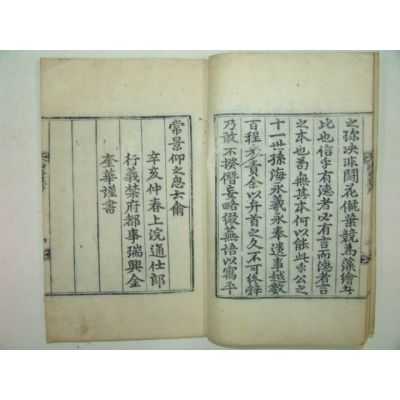 之弥决非鬪花儷葉競為藻繪者
比也信乎有德者必有言而德者言
之本也苟無其本何以能此乎公之
十一世孫海永羲永奉遺事越數
百程芳責余以弁首之久不可終辭
乃敢不揆僭妄略綴蕪語以寓平
常景仰之思云爾
辛亥仲春上浣通仕郎
行義禁府都事瑞興金
奎華謹書